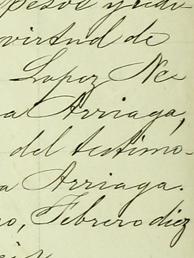 pesos y redi-
virtud de
Lopez Ne
a Arriaga,
del testimo-
a Arriaga.
o, Febrero diez